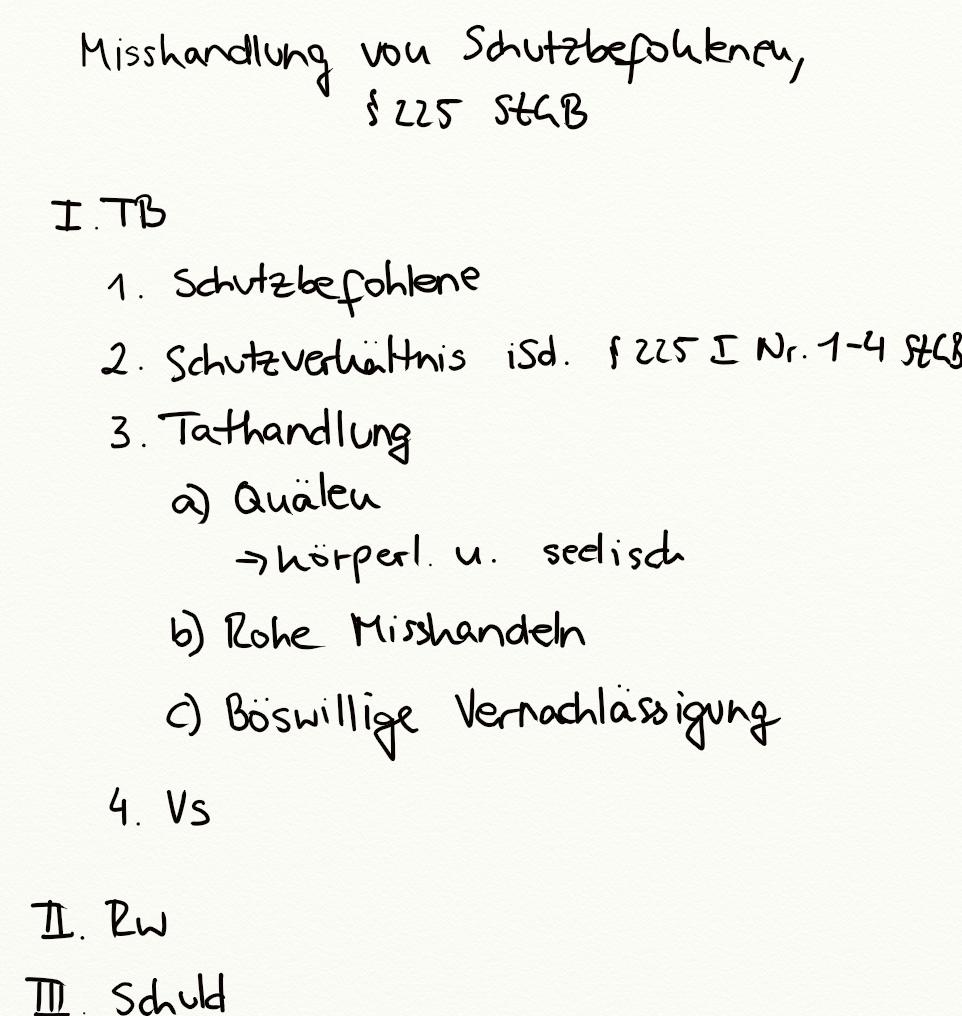 Misshandlung von Schutzbefohlenen,
§ 225 StGB
I. TB
1. Schutzbefohlene
2. Schutzverhältnis iSd. § 225 I Nr. 1-4 StGB
3. Tathandlung
a) Quälen
→ körperl. u. seelisch
b) Rohe Misshandeln
c) Böswillige Vernachlässigung
4. Vs
II. Rw
III. Schuld